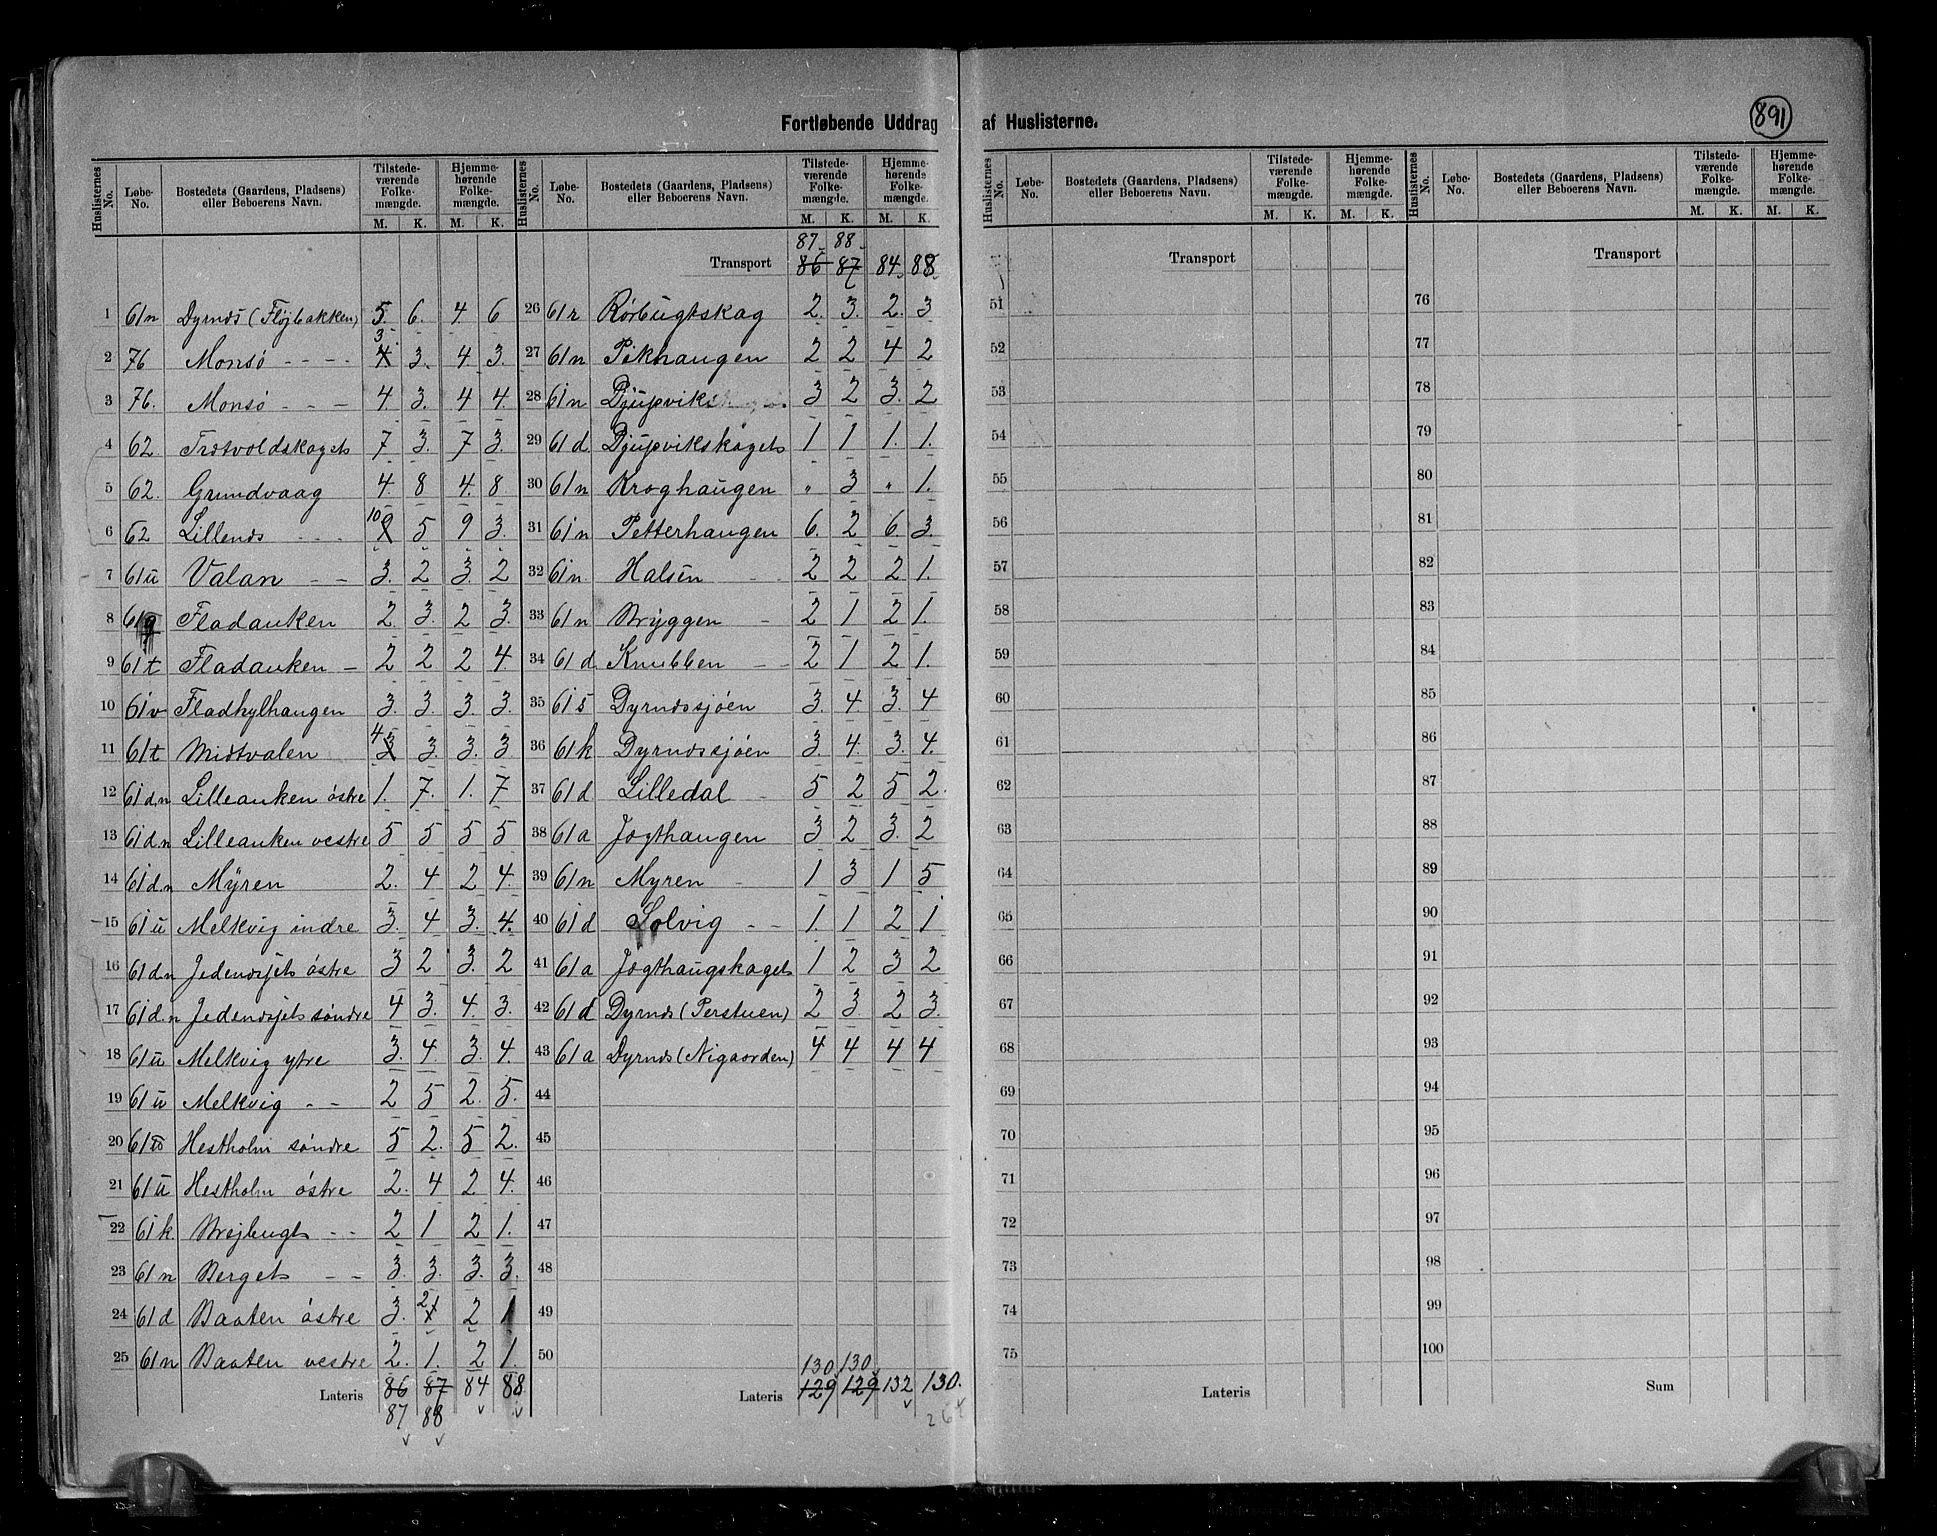 Fortløbende Uddrag af Huslisterne.
891
Huslisternes No. | Løbe-No. | Bostedets (Gaardens, Pladsens) eller Beboerens Navn. | Tilstedeværende Folkemængde. M. K. | Hjemmehørende Folkemængde. M. K.
1 61n Dyrnæs (Fløjbakken) 5. 6. 4. 6
2 76 Monsø - - - - 3 4 3. 4. 3.
3 76. Monsø - - - 4 3. 4 4.
4 62 Trætvoldskagets 7 3. 7 3.
5 62. Grundvaag 4. 8 4. 8
6 62 Lillenæs - - - 10 9 5 9 3.
7 61u Valan - - 3. 2 3. 2
8 61q Fladauken 2. 3. 2 3.
9 61t Fladauken - 2 2 2 4.
10 61v Fladhylhaugen 3. 3. 3. 3.
11 61t Midtvalen 4 3 3. 3. 3
12 61d.n Lilleauken østre 1. 7. 1. 7
13 61d.n Lilleauken vestre 5 5 5 5
14 61d.n Myren 2. 4 2 4.
15 61u Melkvig indre 3. 4 3. 4.
16 61d.n Jedenæsjets østre 3 2 3. 2
17 61d.n Jedenæsjets søndre 4 3. 4. 3.
18 61u Melkvig ytre 3. 4. 3 4.
19 61u Melkvig - - 2 5 2. 5.
20 61 Hestholm søndre 5 2. 5 2.
21 61u Hestholm østre 2. 4 2 4.
22 61k Brejbugt - - 2 1 2 1.
23 61n Berget - - 3. 3. 3. 3.
24 61d Baaten østre 3. 2 1 2 1
25 61n Baaten vestre 2. 1. 2 1.
Lateris 86 87 84 88
87 88
87 88
Transport 86 87 84 88
26 61r Rørbugtskag 2. 3. 2. 3
27 61n Pikhaugen 2 2 4 2
28 61n Djupvik 3 2 3. 2
29 61d Djupvikskagets 1 1 1. 1.
30 61n Kroghaugen " 3 " 1.
31 61n Petterhaugen 6. 2 6. 3.
32 61n Halsen 2 2 2 1.
33 61n Bryggen - 2 1 2 1.
34 61d Knubben - - 2 1 2 1.
35 61s Dyrnæssjøen 3. 4. 3. 4
36 61k Dyrnæssjøen 3. 4. 3. 4.
37 61d Lilledal - 5 2 5 2.
38 61a Jogthaugen 3 2 3. 2
39 61n Myren - 1 3 1 5
40 61d Solvig - - 1. 1 2 1
41 61a Jogthaugskagets 1 2 3 2
42 61d Dyrnæs (Perstuen) 2 3. 2 3.
43 61a Dyrnæs (Nigaarden) 4 4 4 4
44
45
46
47
48
49
50
130 130
Lateris 129 129 132 130.
264
Huslisternes No. | Løbe-No. | Bostedets (Gaardens, Pladsens) eller Beboerens Navn. | Tilstedeværende Folkemængde. M. K. | Hjemmehørende Folkemængde. M. K.
Transport
51
52
53
54
55
56
57
58
59
60
61
62
63
64
65
66
67
68
69
70
71
72
73
74
75
Lateris
Transport
76
77
78
79
80
81
82
83
84
85
86
87
88
89
90
91
92
93
94
95
96
97
98
99
100
Sum